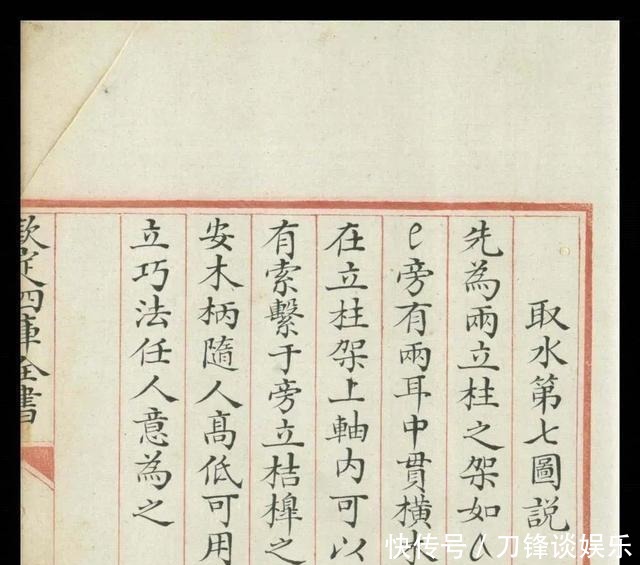 取水第七圖説
先為兩立柱之架如
e旁有兩耳中貫横
在立柱架上軸内可以
有索繫于旁立桔槹之
安木柄隨人髙低可用
立巧法任人意為之
欽定四庫全書
快传号/刀锋谈娱乐